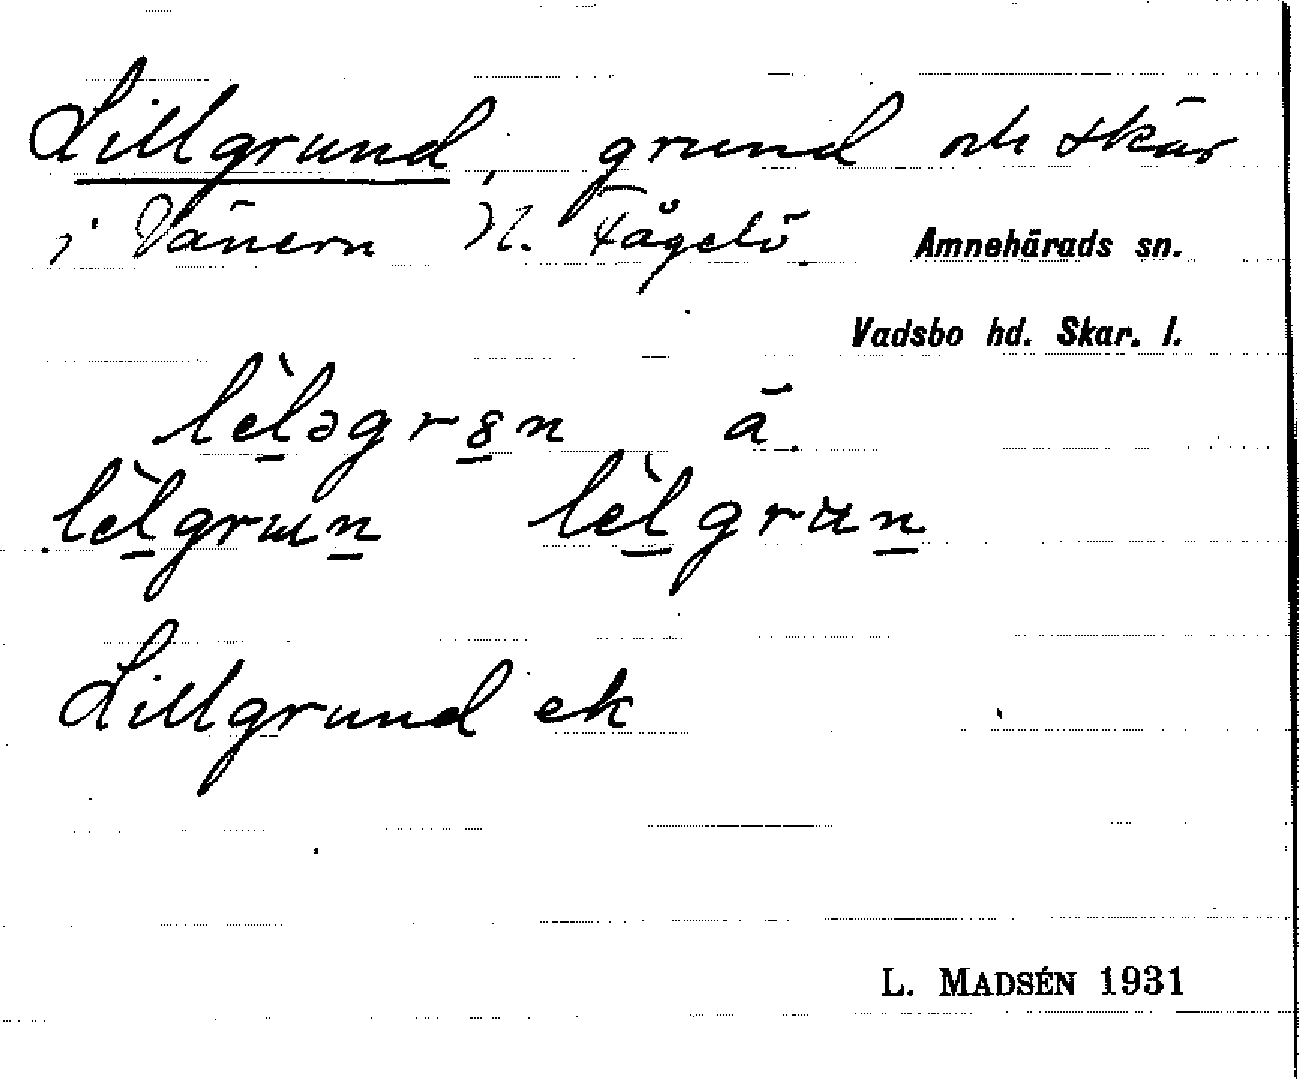 Lillgrund, grund och skär
i Vänern N. Fågelö. Amnehärads sn.
Vadsbo hd. Skar. l.
lèləgrȣn ä.
lèlgrɯn lèlgrun
Lillgrund ek
L. MADSÉN 1931